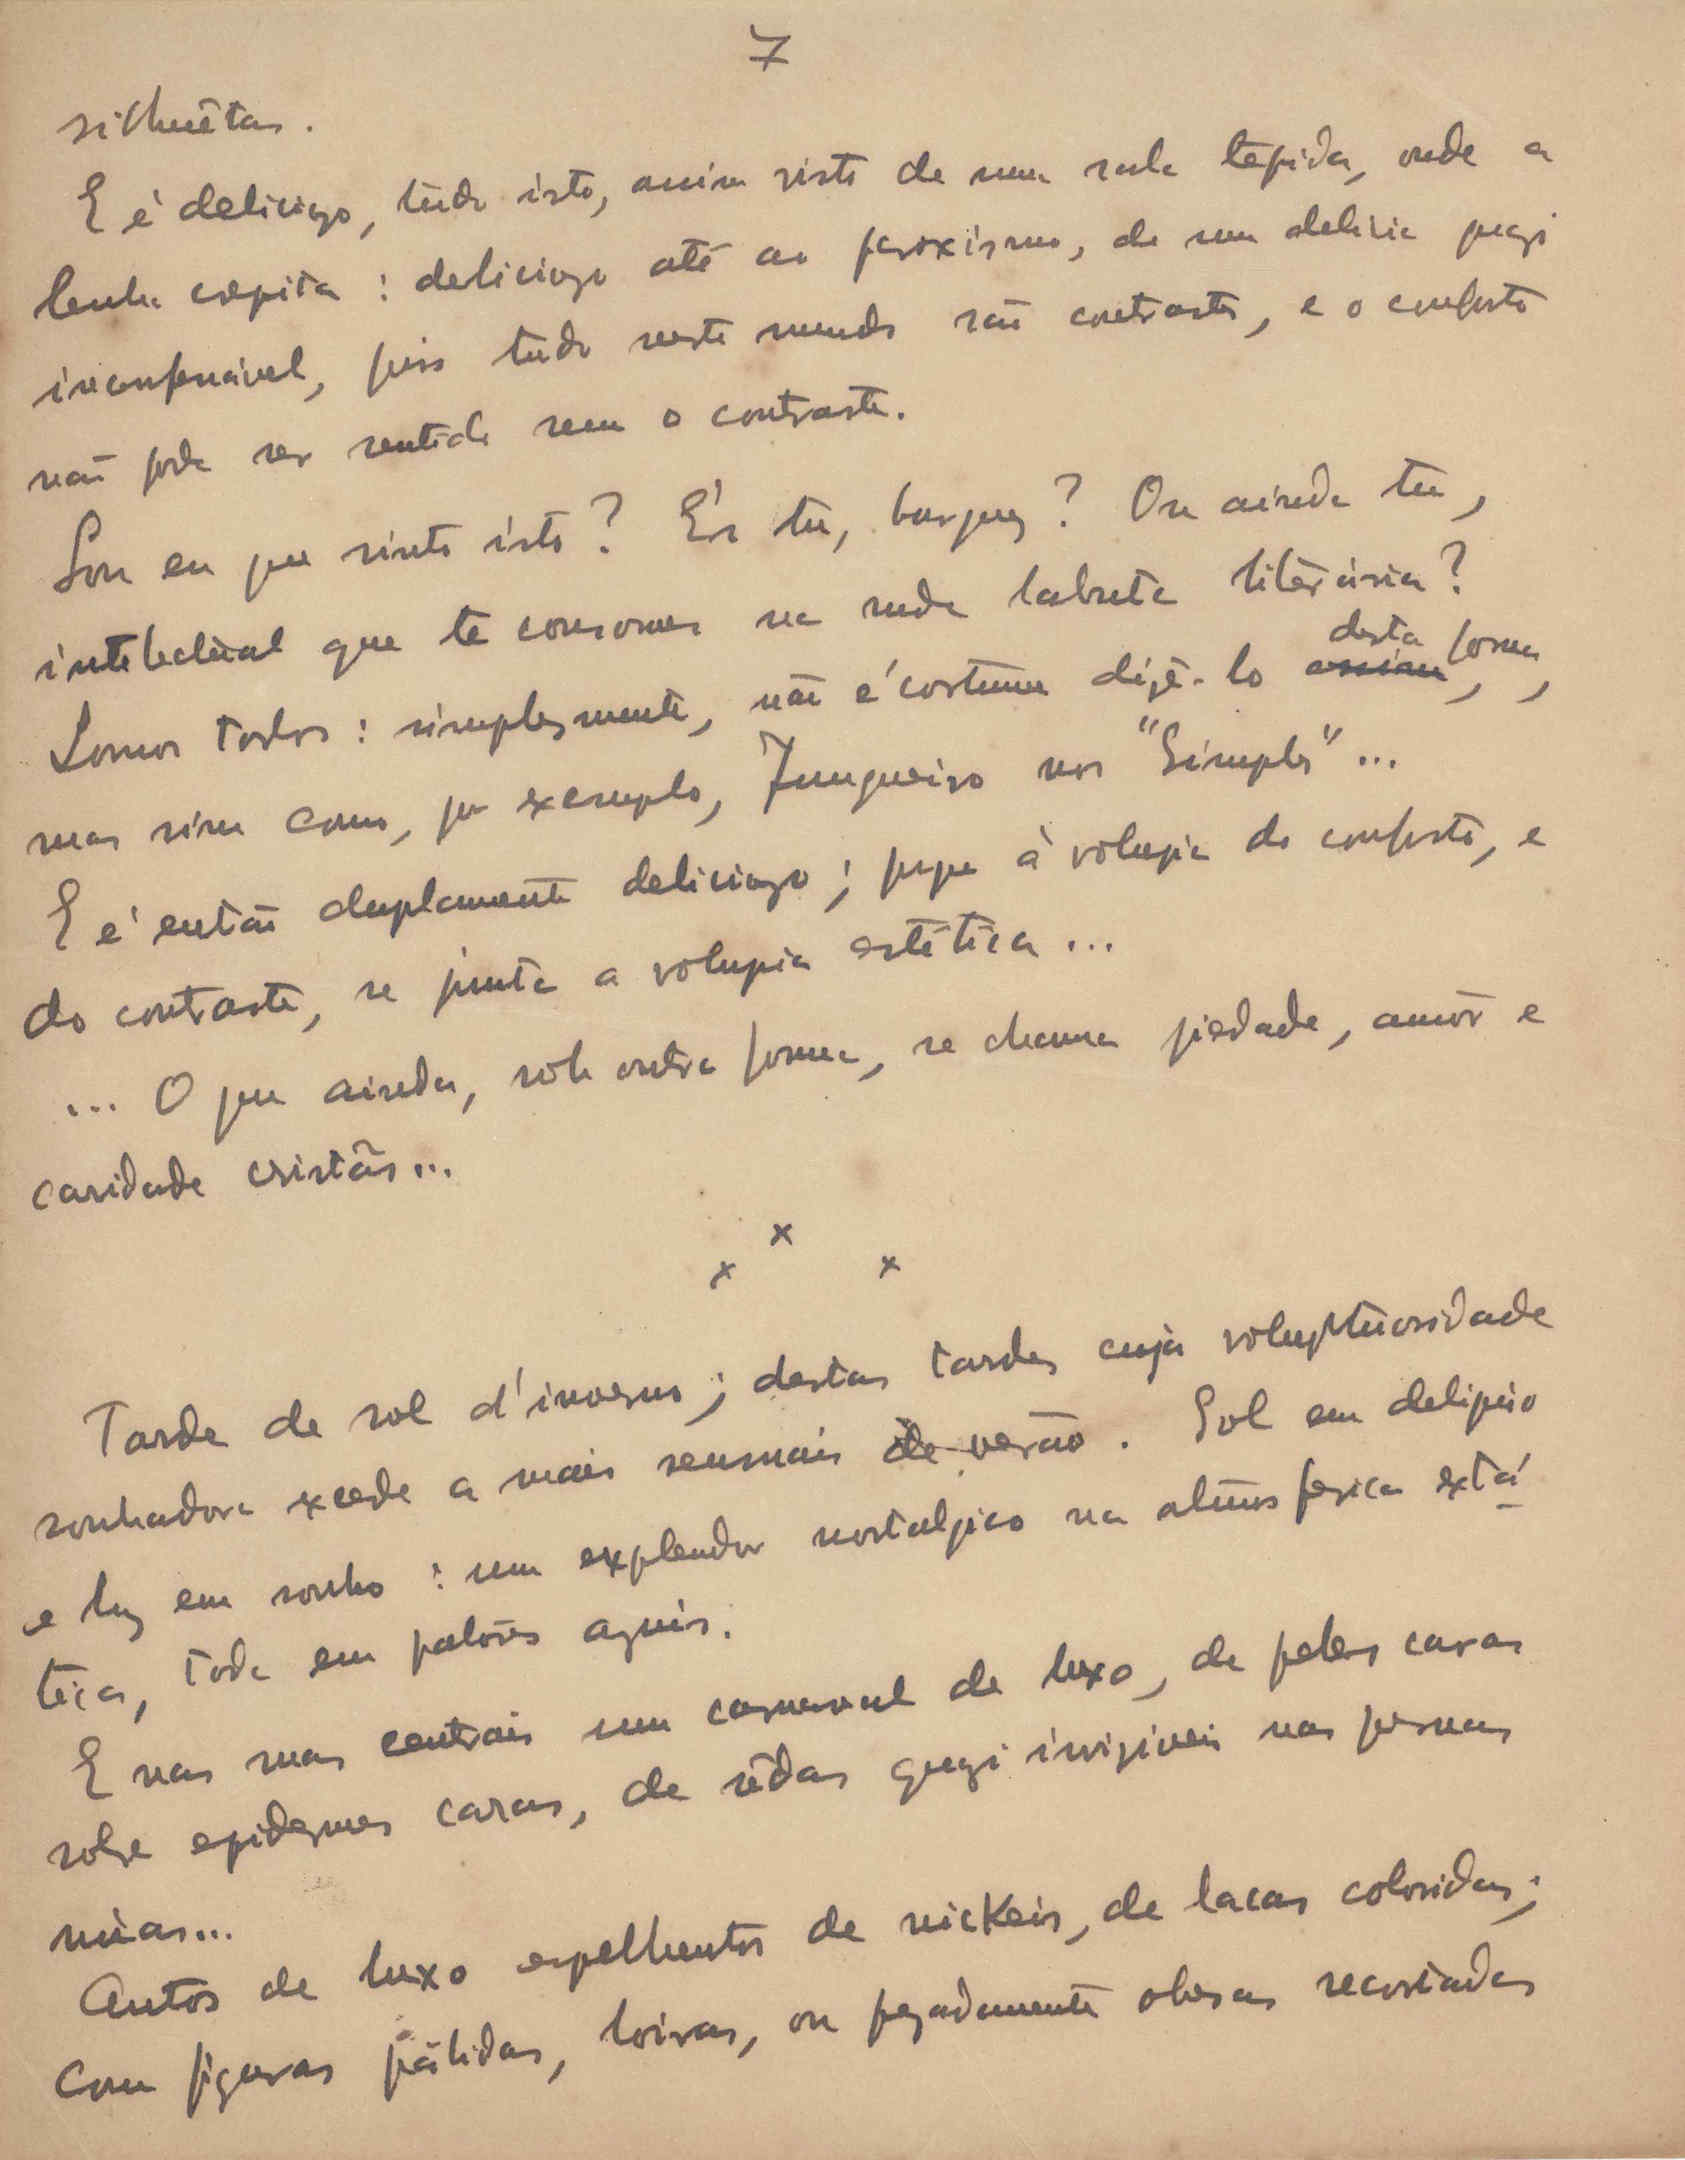 7
silhuêtas.
E é delicioso, tudo isto, assim visto de uma sala tépida, onde a
lenha crepita: delicioso até ao paroxismo, de um delirio quasi
inconfessável, pois tudo neste mundo são contrastes, e o conforto
não pode ser sentido sem o contraste.
Sou eu que sinto isto? És tu, burguez? Ou ainda tu,
intelectual que te consomes na rude labuta literária?
Somos todos: simplesmente, não é costume dizê-lo assim, desta forma,
mas sim como, por exemplo, Junqueiro nos "Simples"...
E é então duplamente delicioso; porque à volupia do conforto, e
do contraste, se junta a volupia estética...
... O que ainda, sob outra forma, se chama piedade, amôr e
caridade cristãs...
x x x
Tarde de sol d'inverno; destas tardes cuja voluptuosidade
sonhadora excede a mais sensuais de verão. Sol em deliquio
e luz em sonho: um explendor nostalgico na atmosferica extá
tica, toda em palôres azuis.
E nas ruas centrais um carnaval de luxo, de peles caras
sobre epidermes caras, de sêdas quasi invisiveis nas pernas
núas...
Autos de luxo espelhentos de nickeis, de lacas coloridas;
com figuras pálidas, loiras, ou pesadamente obesas recostadas